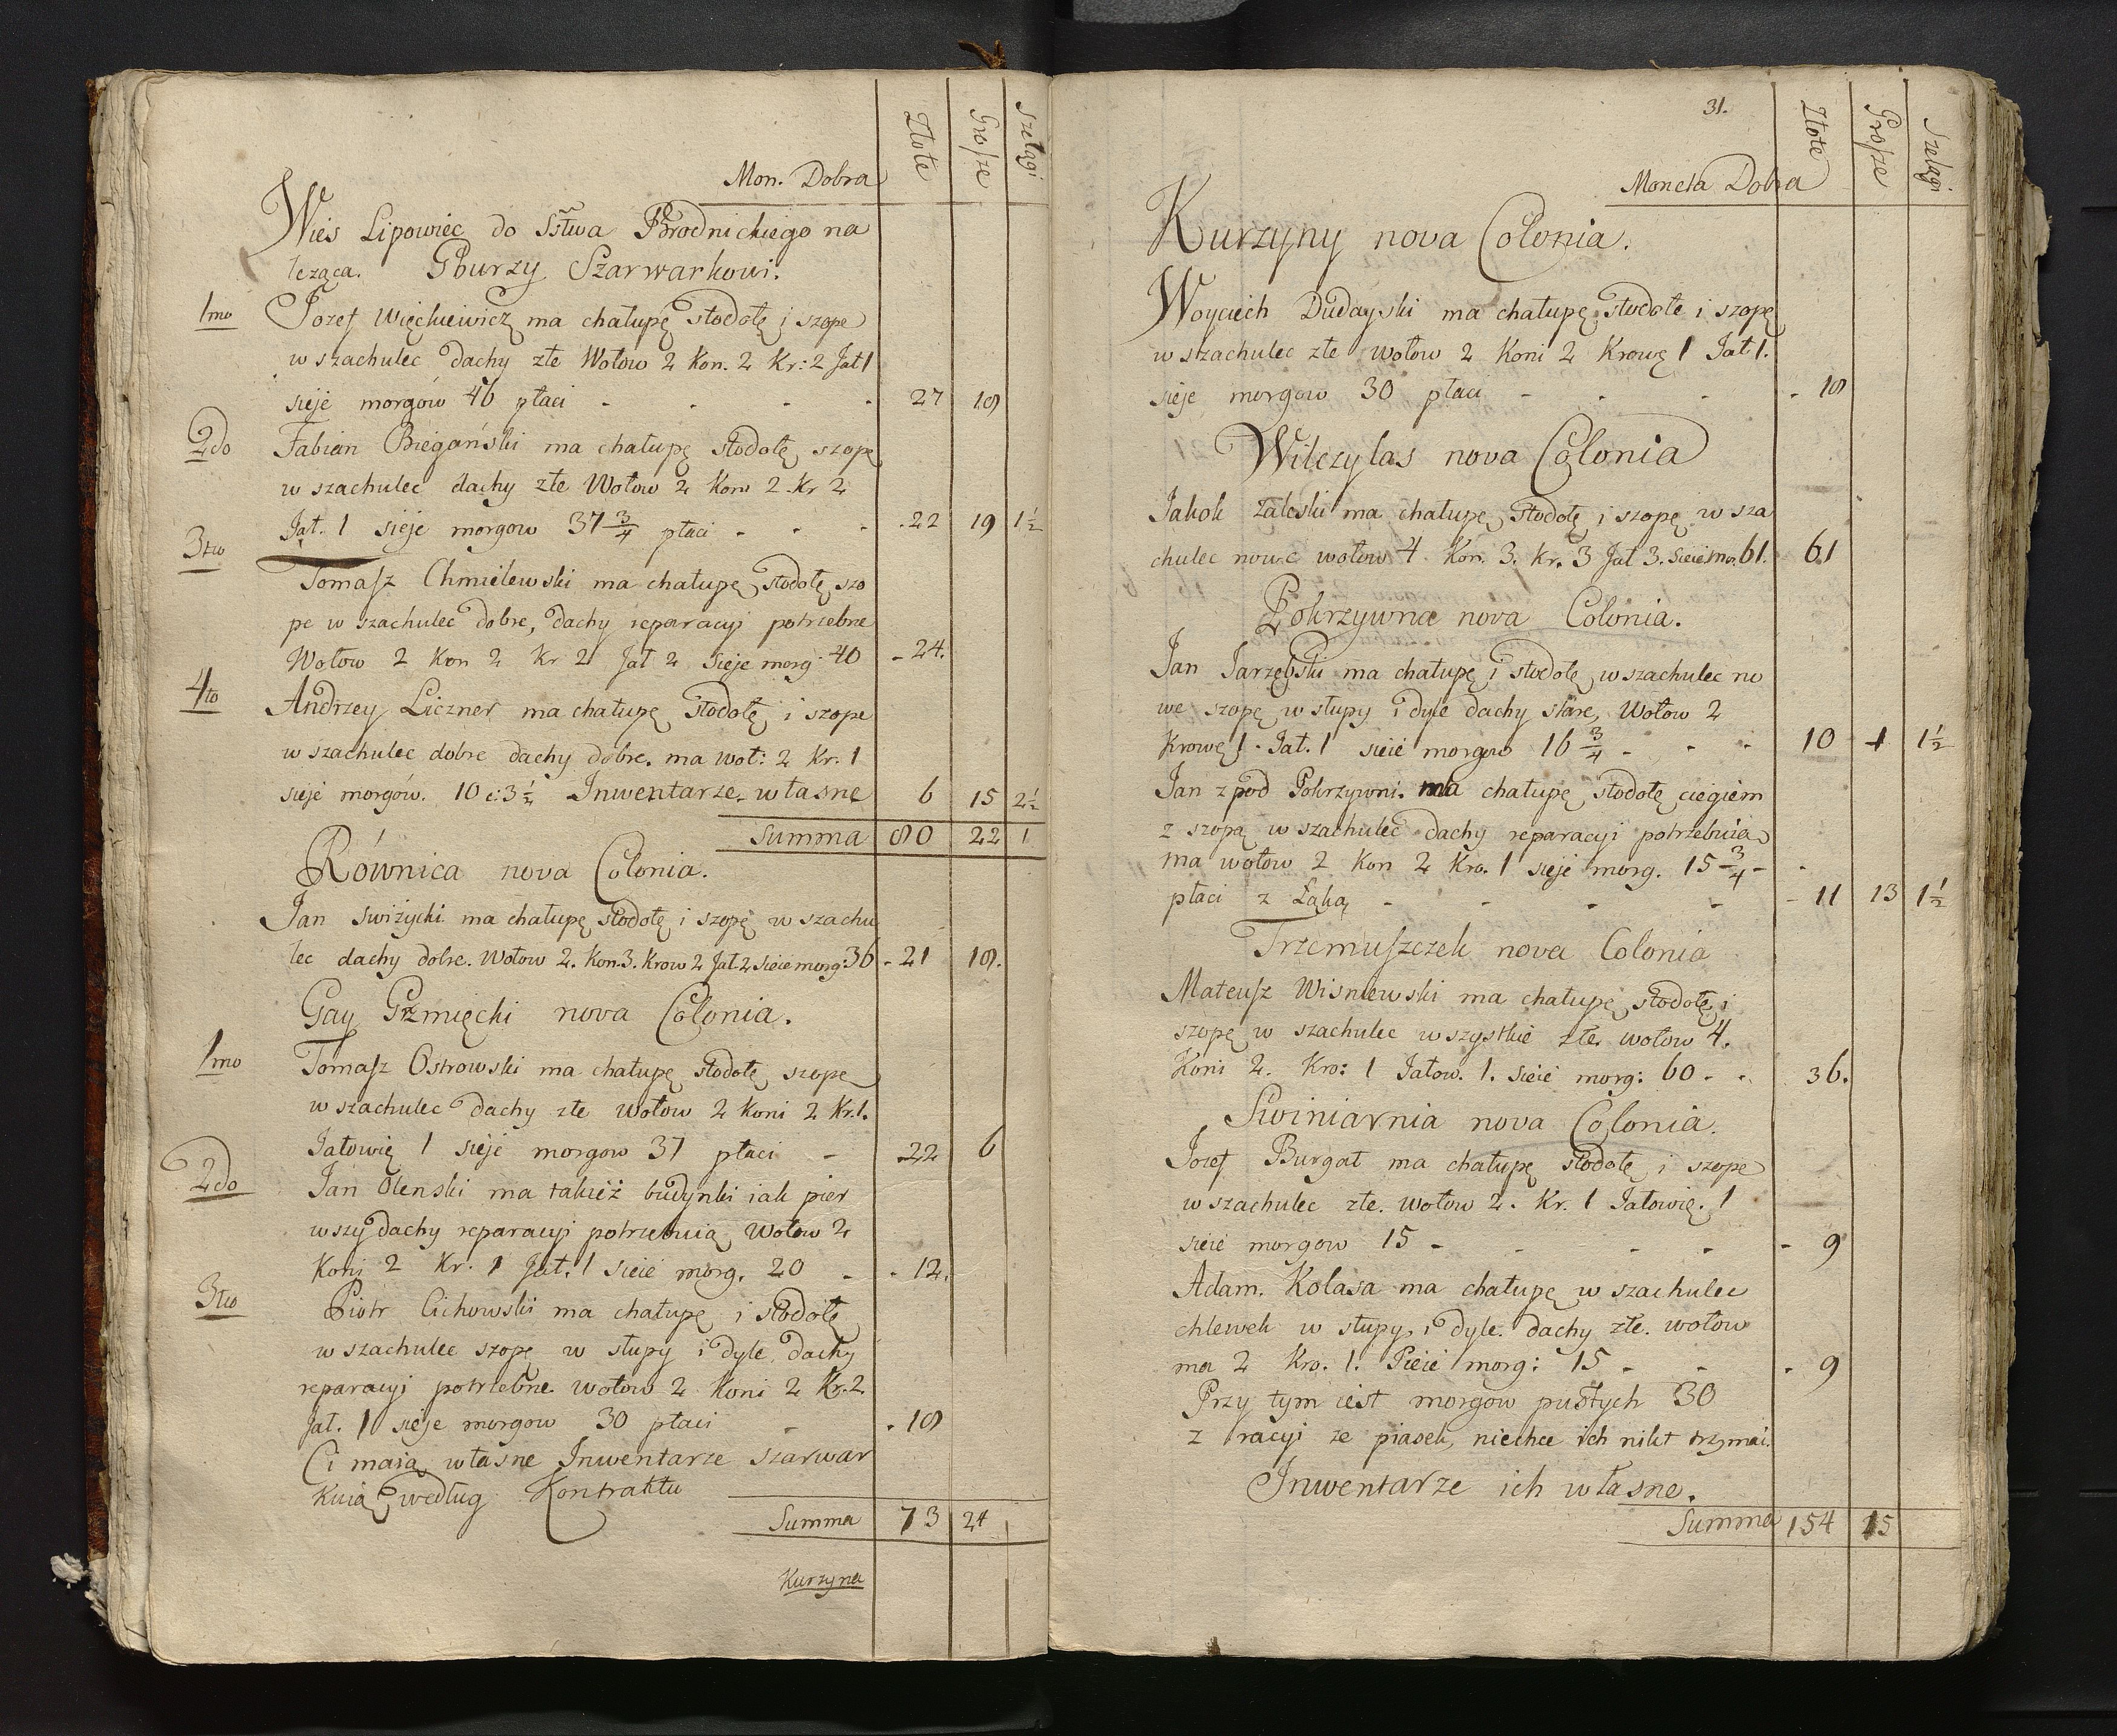 Złote Grosze Szelągi
Mon. Dobra
Wies Lipowiec do Sstwa Brodnickiego na
leząca. Gburzy Szarwarkowi.
1mo Jozef Więckiewicz ma chałupę stodołę i szope
w szachulec dachy złe Wołow 2 Kon. 2 Kr: 2 Jał 1
sieje morgów 46 płaci - - - - 27 18
2do Fabian Biegański ma chałupę stodołę szopę
w szachulec dachy złe Wołow 2 Kon 2 Kr 2
Jał. 1 sieje morgow 37 3/4 płaci - - - 22 19 1 1/2
3tio Tomasz Chmielewski ma chałupę stodołę szo
pe w szachulec dobre, dachy reparacyi potrzebne
Wołow 2 Kon 2 Kr 2 Jał 2 Sieje morg 40 - 24.
4to Andrzey Liczner ma chałupę stodołę i szope
w szachulec dobre dachy dobre. ma woł: 2 Kr. 1
sieje morgów. 10 c: 3 1/2 Inwentarze własne 6 15 2 1/2
Summa 80 22 1
Równica nova Colonia.
Jan Swiżycki ma chałupę stodołę i szopę w szachu
lec dachy dobre. Wołow 2. Kon. 3. Krow 2 Jał. 2 Sieie morg: 36 - 21 18.
Gay Grzmięcki nova Colonia.
1mo Tomasz Ostrowski ma chałupę stodołę szope
w szachulec dachy złe wołow 2 Koni 2 Kr. 1.
Jałowię 1 sieje morgow 37 płaci - 22 6
2do Jan Olenski ma takież budynki iak pier
wszy dachy reparacyi potrzebuią Wołow 2
Koni 2 Kr. 1 Jał. 1 sieie morg. 20 - - 12.
3tio Piotr Cichowski ma chałupę i stodołę
w szachulec szopę w słupy i dyle dachy
reparacyi potrzebne wołow 2 Koni 2 Kr. 2.
Jał. 1 sieje morgow 30 płaci - - 18
Ci maią własne Inwentarze szarwar
kuią według Kontraktu
Summa 73 24
Kurzyna
31.
Złote Grosze Szelągi
Moneta Dobra
Kurzyny nova Colonia.
Woyciech Dudayski ma chałupę stodołe i szopę
w szachulec złe wołow 2 Koni 2 Krowę 1 Jał. 1.
sieje morgow 30 płaci - - - - 18
Wilczylas nova Colonia
Jakob Zaleski ma chałupę stodołę i szopę w sza
chulec nowe wołow 4 Kon. 3. Kr. 3 Jał 3. Sieie mo. 61. 61
Pokrzywna nova Colonia.
Jan Jarzębski ma chałupę i stodołę w szachulec no
we szopę w słupy i dyle dachy stare, Wołow 2
Krowę 1. Jał. 1 sieie morgow 16 3/4 - - - 10 1 1 1/2
Jan z pod Pokrzywni. ma chałupę stodołę ciegiem
z szopą w szachulec dachy reparacyi potrzebuią
ma wołow 2 Kon 2 Kro. 1 sieje morg. 15 3/4 -
płaci z Łąką - - - - - 11 13 1 1/2
Trzemuszczek nova Colonia
Mateusz Wisniewski ma chałupę stodołę i
szopę w szachulec wszystkie złe wołow 4.
Koni 2. Kro: 1 Jałow. 1. Sieie morg: 60 - - 36.
Swiniarnia nova Colonia.
Jozef Burgat ma chałupę stodołę i szope
w szachulec złe. wołow 2. Kr. 1 Jałowię. 1
sieie morgow 15 - - - - - 9
Adam. Kolasa ma chałupę w szachulec
chlewek w słupy i dyle. dachy złe. wołow
ma 2 Kro. 1. Sieie morg: 15 - - - 9
Przy tym iest morgow pustych 30
z racyi ze piasek, niechce ich nikt trzmai.
Inwentarze ich własne.
Summa 154 15